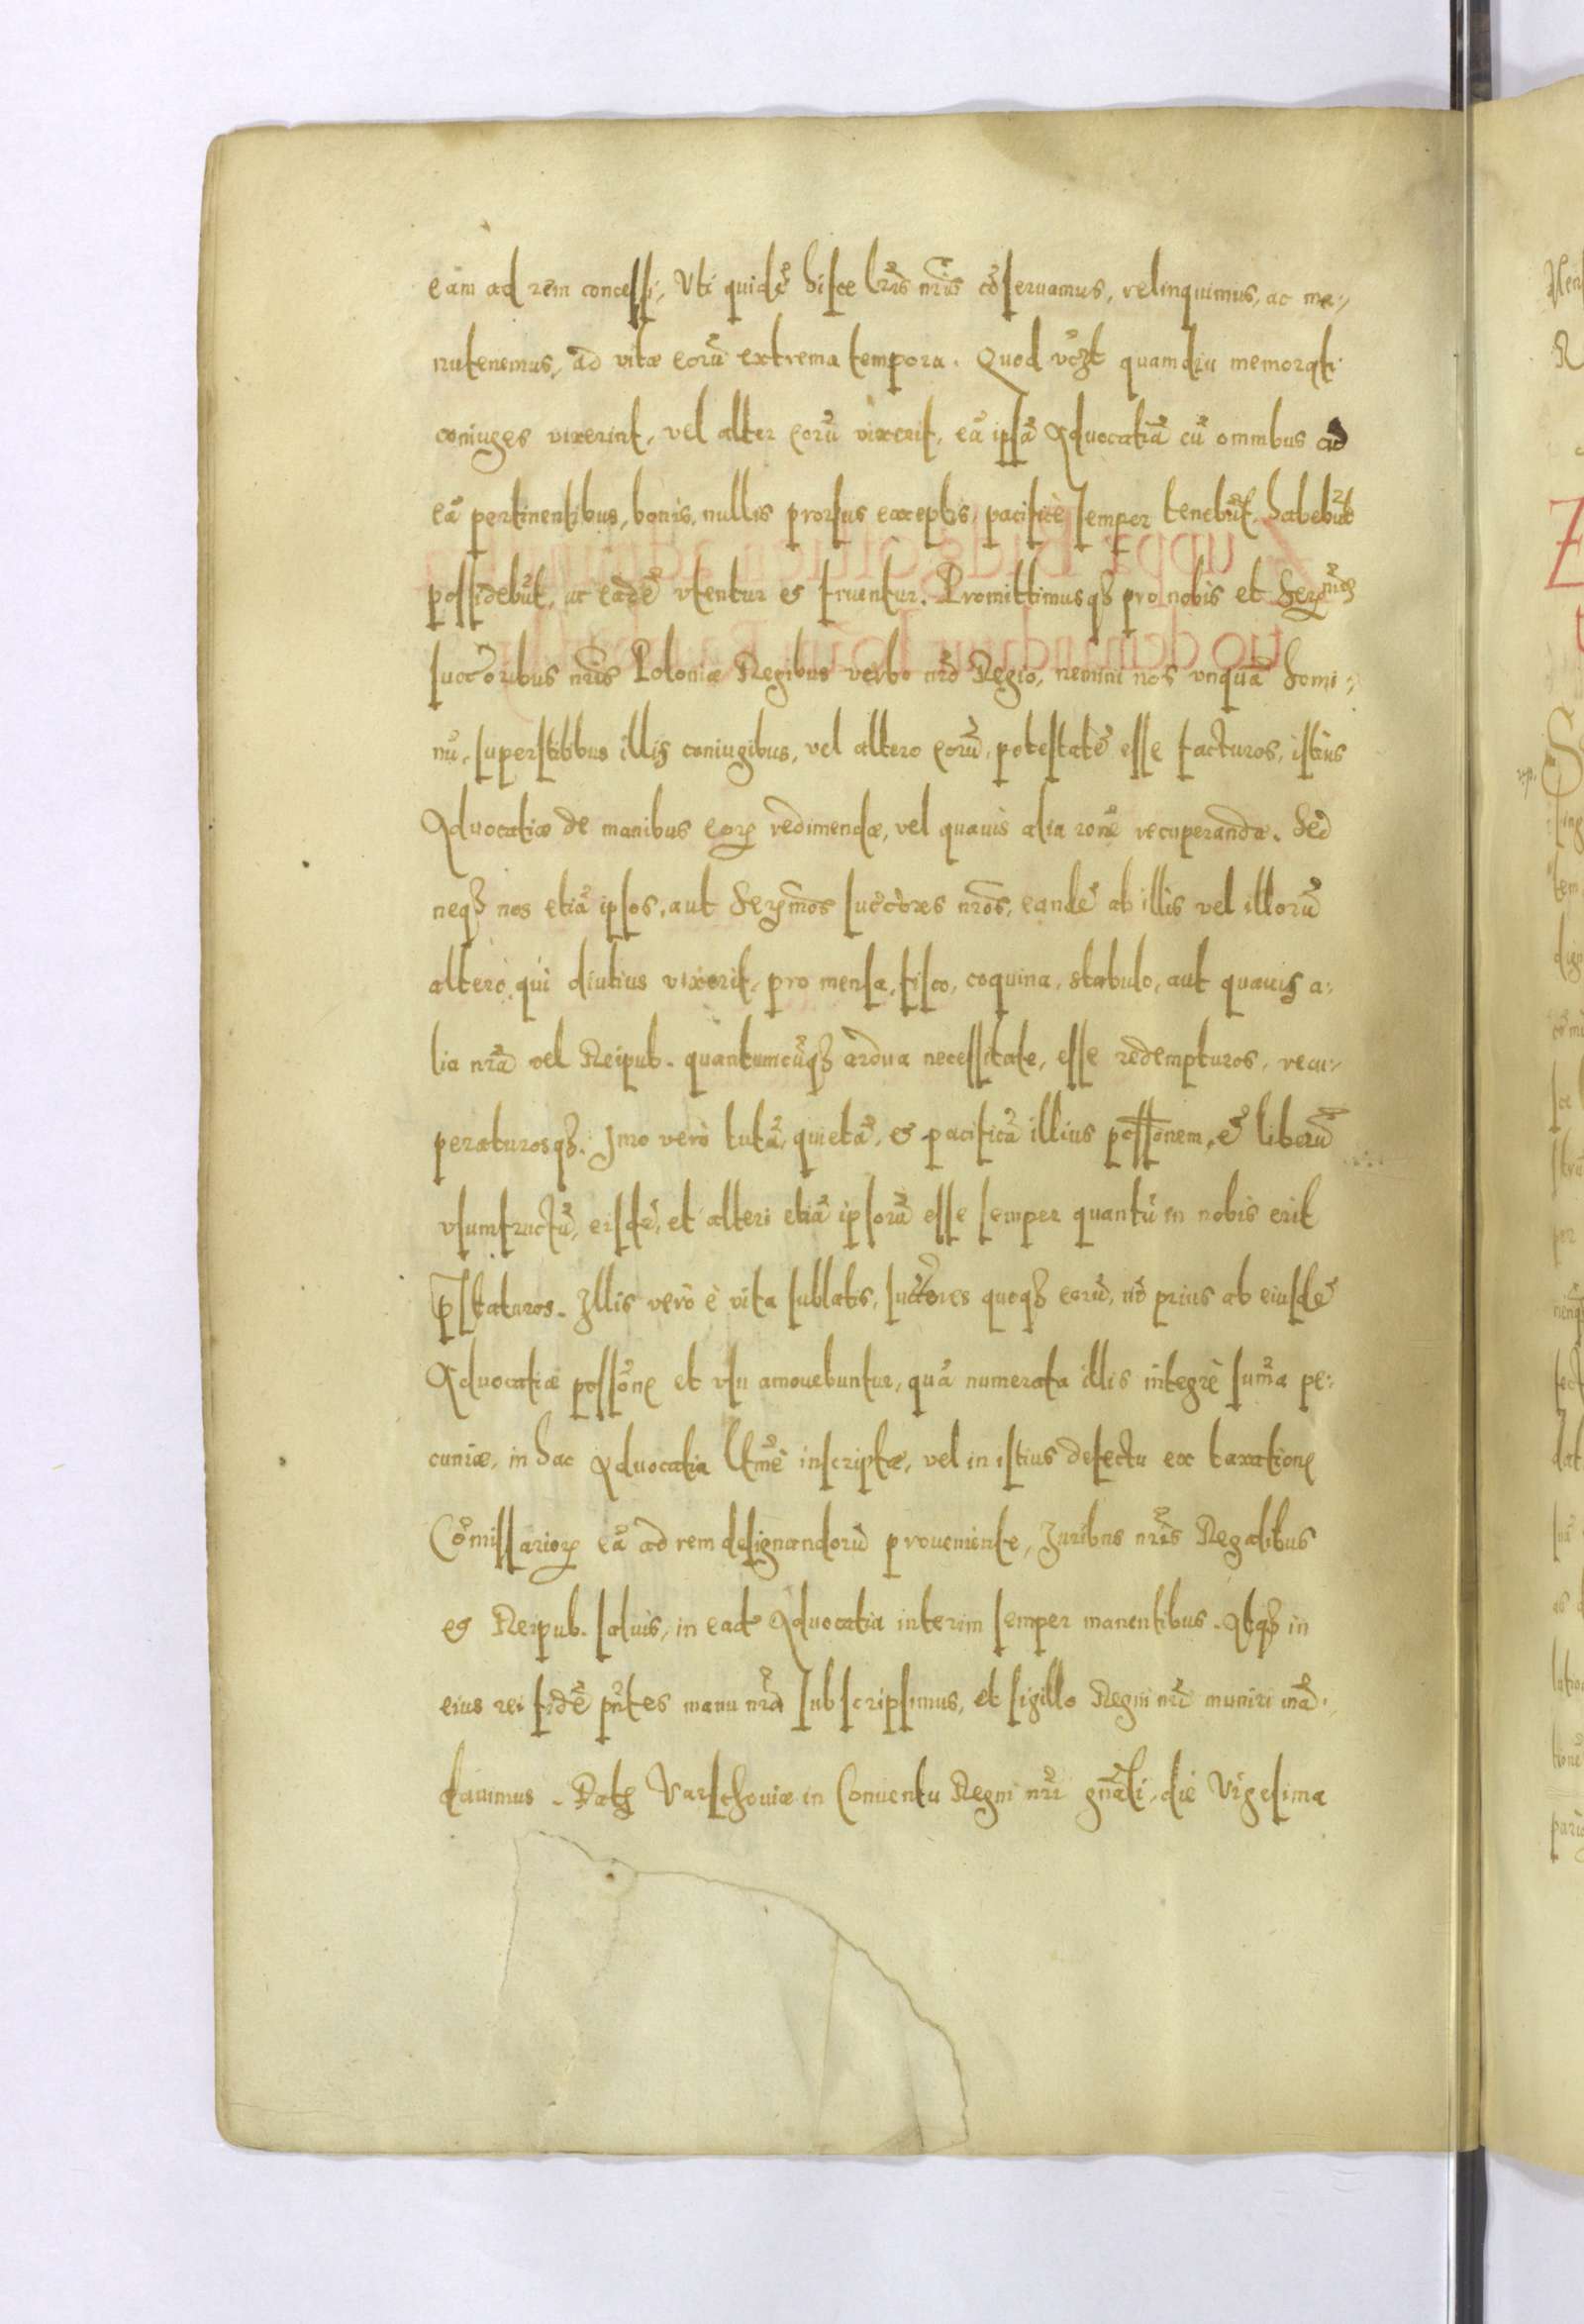 eam ad rem concessi, Uti quidē hisce lr̄is nr̄is cōseruamus, relinquimus, ac ma-
nutenemus, ad vitæ eorū extrema tempora. Quod vōꝫt quamdiu memorati
coniuges vixerint, vel alter eorū vixerit, eā ipsā Aduocatiā cū omnibus ad
eā pertinentibus, bonis, nullis prorsus exceptis, pacificè semper tenebūt, habebūt
possidebūt, ac eādē vtentur et fruentur. Promittimusqꝫ pro nobis et Serᵐⁱˢ
succ̄oribus nr̄is Poloniæ Regibus verbo nr̄o Regio, nemini nos vnquā homi-
nū, superstitibus illis coniugibus, vel altero eorū, potestatē esse facturos, istius
Aduocatiæ de manibus eoꝝ redimendæ, vel quauis alia ronē recuperandæ. Sed
neqꝫ nos etiā ipsos, aut Serᵐos succ̄ores nr̄os, eandē ab illis vel illorū
altero, qui diutius vixerit, pro mensa, fisco, coquina, stabulo, aut quauis a-
lia nr̄a vel Reipub. quantumcūqꝫ ardua necessitate, esse redempturos, recu-
peraturosqꝫ. Imo verò tutā, quietā, et pacificā illius possōnem, et liberū
vsumfructū, eisdē, et alteri etiā ipsorū esse semper quantū in nobis erit
p̄staturos. Illis verò è vita sublatis, succ̄ores quoqꝫ eorū, nō prius ab eiusdē
Aduocatiæ possōne et vsu amouebuntur, quā numerata illis integrè sum̄a pe-
cuniæ, in hac Aduocatia ltmē inscriptæ, vel in istius defectu ex taxatione
Cōmissarioꝝ eā ad rem designandorū proueniente, Iuribus nr̄is Regalibus
et Reipub. saluis, in eadē Aduocatia interim semper manentibus. Atqꝫ in
eius rei fidē pn̄tes manu nr̄a subscripsimus, et sigillo Regni nr̄i muniri mā-
dauimus. Datꝫ Varschouiæ in Conuentu Regni nr̄i gn̄ali, die Vigesima